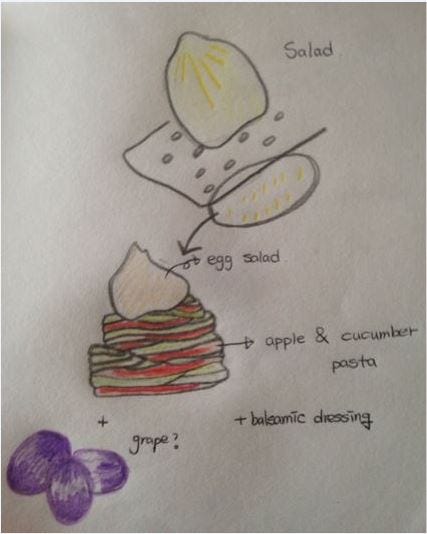 Salad
egg salad
apple & cucumber
pasta
+ balsamic dressing
+
grape?